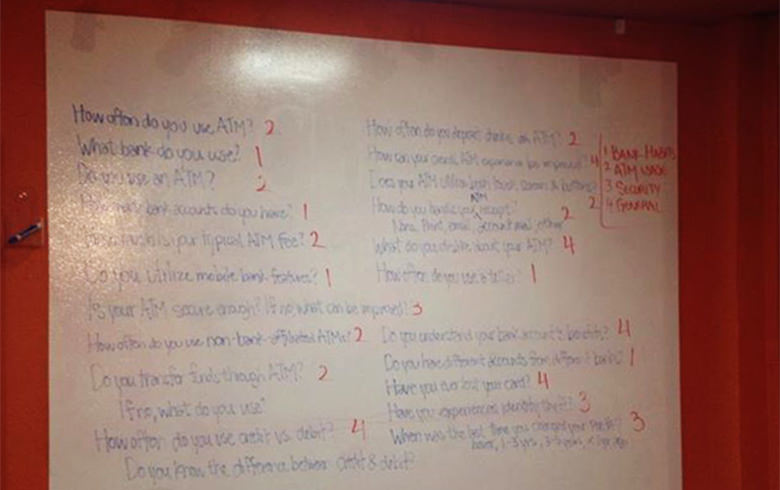 How often do you use ATM? 2
What bank do you use? 1
Do you use an ATM? 2
How many bank accounts do you have? 1
How much is your typical ATM Fee? 2
Do you utilize mobile bank features? 1
Is your ATM secure enough? If no, what can be improved? 3
How often do you use non-bank-affiliated ATMs? 2
Do you transfer funds through ATM? 2
If no, what do you use?
How often do you use credit vs. debit? 4
Do you know the difference between credit & debit?
How often do you deposit checks on ATM? 2
How can your overall ATM experience be improved? 4
Does your ATM utilize both touch screens & buttons? 2
How do you handle your ATM receipt? 2
None, Print, email, account mail, other
What do you dislike about your ATM? 4
How often do you use a teller? 1
Do you understand your bank account's benefits? 4
Do you have different accounts from different banks? 1
Have you ever lost your card? 4
Have you experienced identity theft? 3
When was the last time you changed your PIN #? 3
1-3 yrs, 3-5 years,
1 BANK HABITS
2 ATM USAGE
3 SECURITY
4 GENERAL